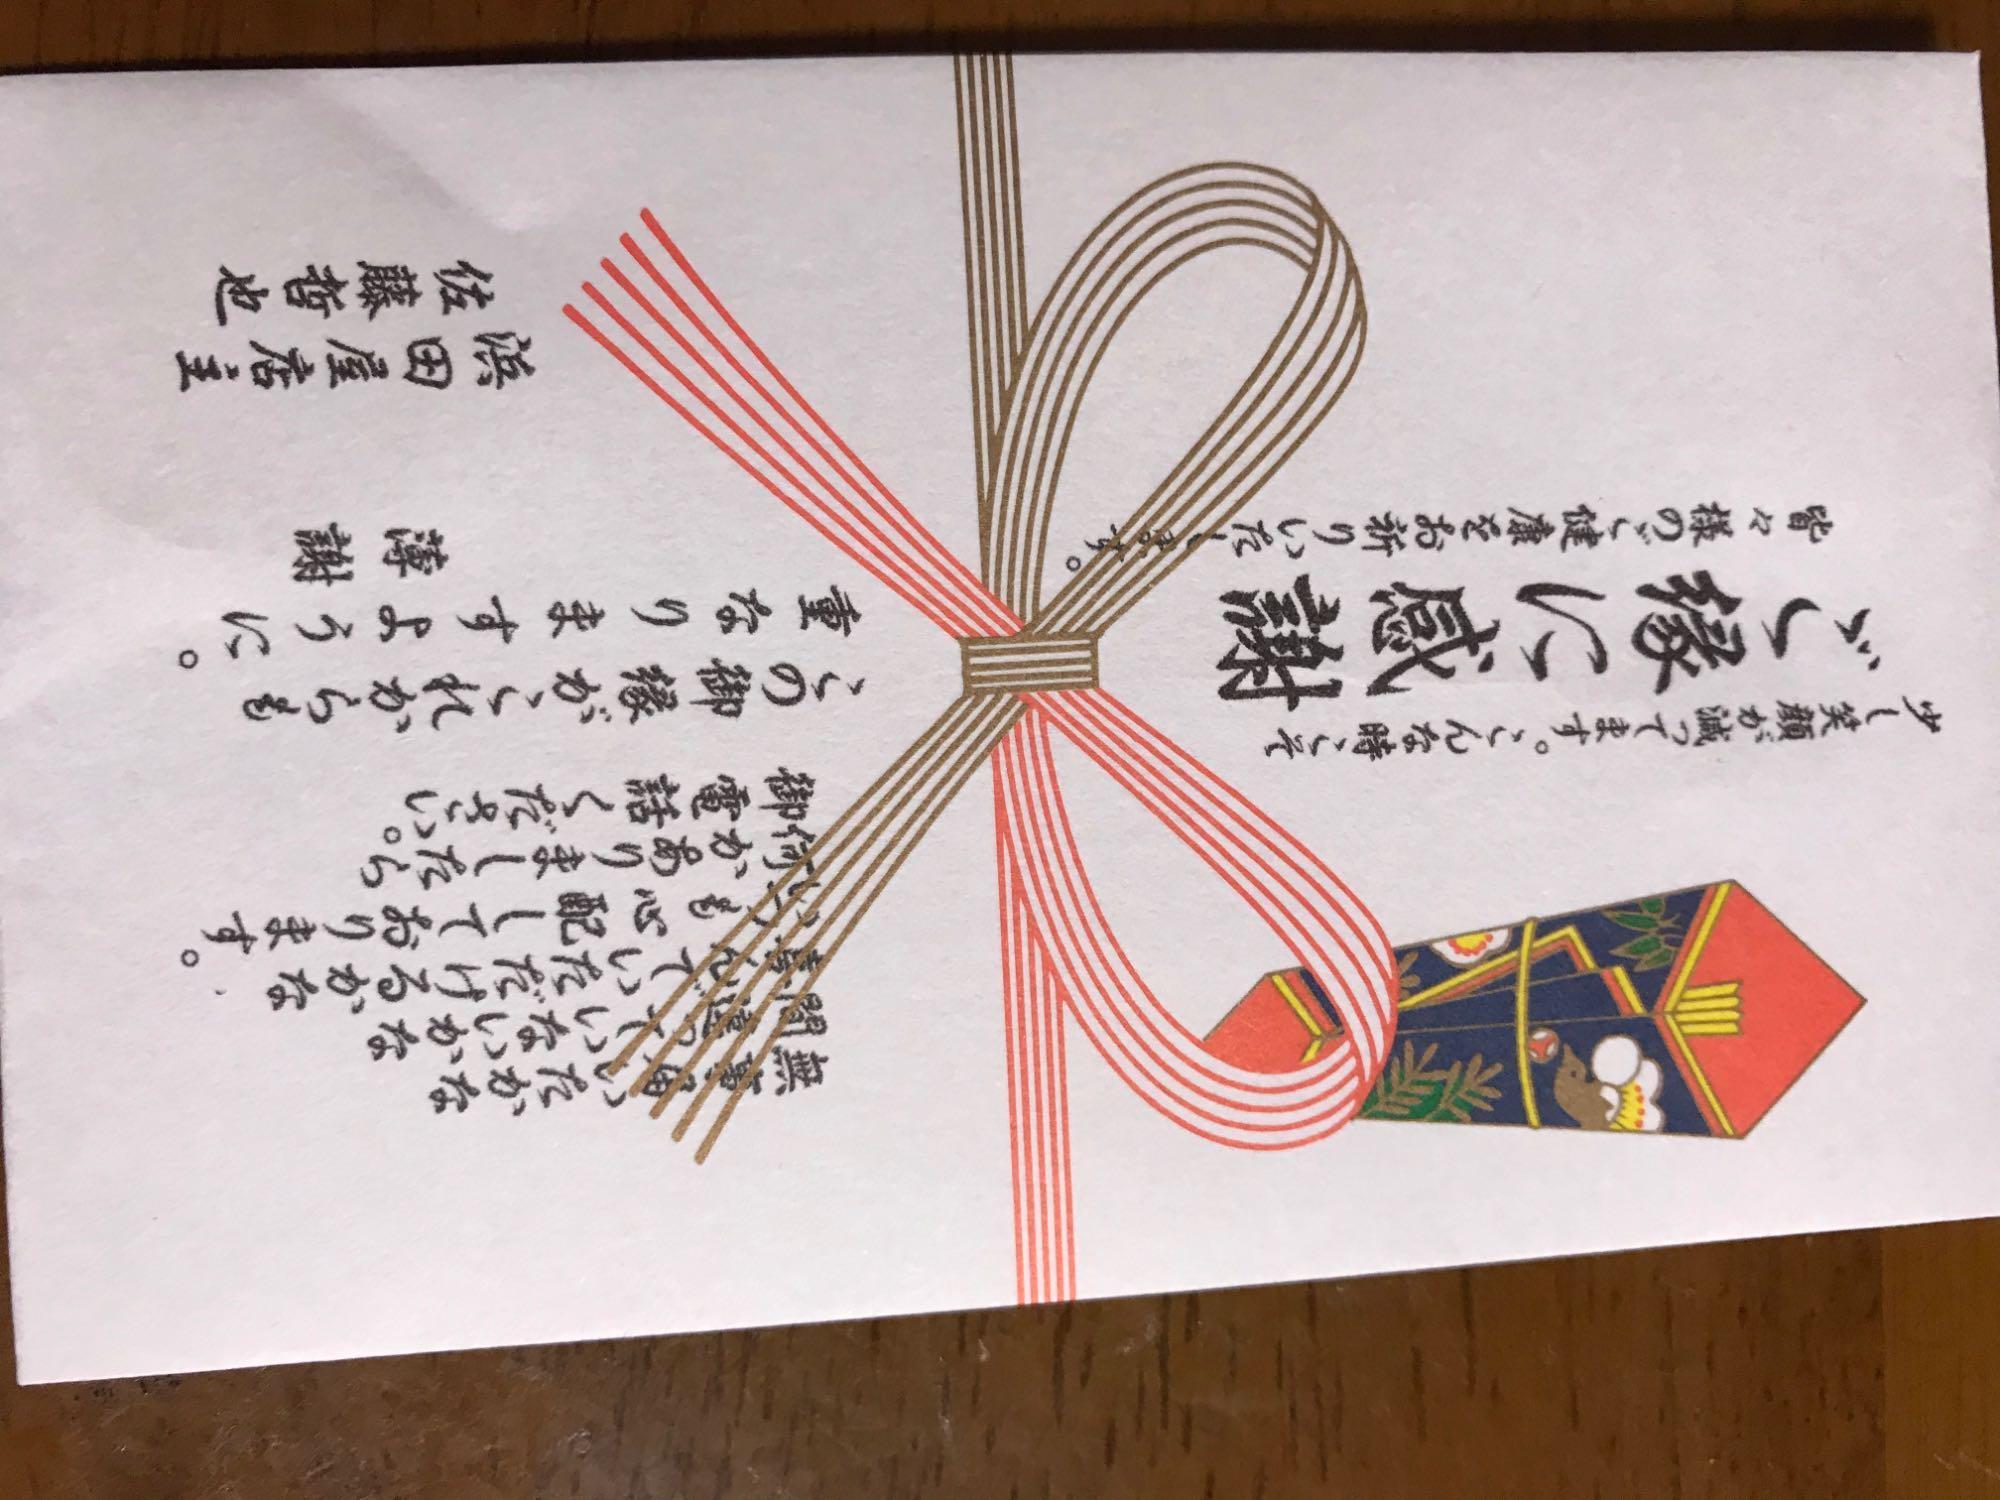 少し笑顔が減ってます。こんな時こそ
ご縁に感謝
皆々様のご健康をお祈りいたします。
無事届いたかな
間違っていないかな
喜んでいただけるかな
いつも心配しております。
何かありましたら
御電話ください。
この御縁がこれからも
重なりますように。
薄謝
浜田屋店主
佐藤哲也